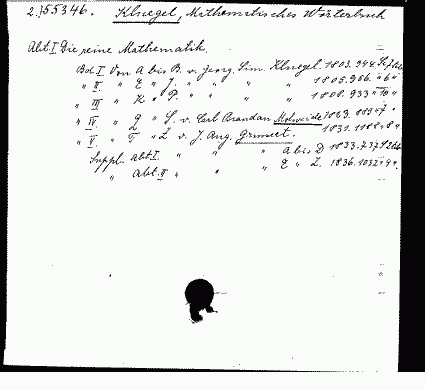 2.)55346. Kluegel, Mathematisches Wörterbuch
Abt. I Die reine Mathematik.
Bd. I Von A bis B. v. Georg. Sim. Kluegel. 1803. 944. S.
" II " E " J. " " " " 1805. 956. " 6 "
" III " K " P. " " " 1808. 933 " 10 "
" IV " Q " S. v. Carl Brandan Mollweide 1823. " 7 "
" V. " T " Z. v. J. Aug. Grunert. 1831. " 8 "
Suppl. Abt. I. " " " A bis D 1833. 737
" Abt. II " " " E " Z. 1836. " 9 "